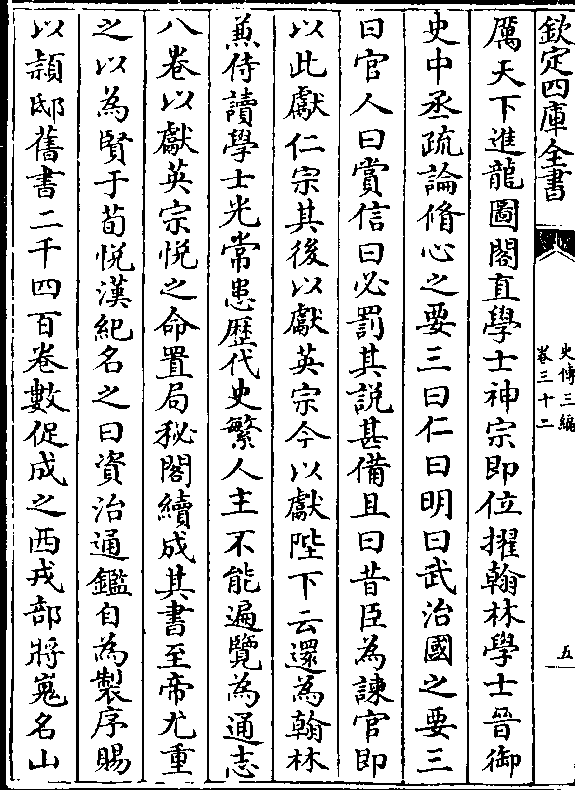 欽定四庫全書
史傳三編
卷三十二
五
厲天下進龍圖閣直學士神宗即位擢翰林學士晉御
史中丞疏論脩心之要三曰仁曰明曰武治國之要三
曰官人曰賞信曰必罰其說甚備且曰昔臣為諫官即
以此獻仁宗其後以獻英宗今以獻陛下云還為翰林
兼侍讀學士光常患歴代史繁人主不能遍覽為通志
八卷以獻英宗悅之命置局秘閣續成其書至帝尤重
之以為賢于荀悅漢紀名之曰資治通鑑自為製序賜
以頴邸舊書二千四百卷數促成之西戎部將嵬名山